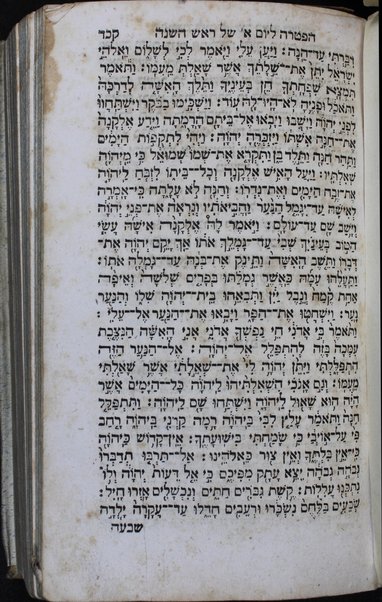 הפטרה ליום א׳ של ראש השנה קכד
דִּבַּרְתִּי עַד־הֵנָּה׃ וַיַּעַן עֵלִי וַיֹּאמֶר לְכִי לְשָׁלוֹם וֵאלֹהֵי
יִשְׂרָאֵל יִתֵּן אֶת־שֵׁלָתֵךְ אֲשֶׁר שָׁאַלְתְּ מֵעִמּוֹ׃ וַתֹּאמֶר
תִּמְצָא שִׁפְחָתְךָ חֵן בְּעֵינֶיךָ וַתֵּלֶךְ הָאִשָּׁה לְדַרְכָּהּ
וַתֹּאכַל וּפָנֶיהָ לֹא־הָיוּ־לָהּ עוֹד׃ וַיַּשְׁכִּימוּ בַבֹּקֶר וַיִּשְׁתַּחֲווּ
לִפְנֵי יְהוָֹה וַיָּשֻׁבוּ וַיָּבֹאוּ אֶל־בֵּיתָם הָרָמָתָה וַיֵּדַע אֶלְקָנָה
אֶת־חַנָּה אִשְׁתּוֹ וַיִּזְכְּרֶהָ יְהוָֹה׃ וַיְהִי לִתְקֻפוֹת הַיָּמִים
וַתַּהַר חַנָּה וַתֵּלֶד בֵּן וַתִּקְרָא אֶת־שְׁמוֹ שְׁמוּאֵל כִּי מֵיְהוָֹה
שְׁאִלְתִּיו׃ וַיַּעַל הָאִישׁ אֶלְקָנָה וְכָל־בֵּיתוֹ לִזְבֹּחַ לַיהוָֹה
אֶת־זֶבַח הַיָּמִים וְאֶת־נִדְרוֹ׃ וְחַנָּה לֹא עָלָתָה כִּי־אָמְרָה
לְאִישָׁהּ עַד־יִגָּמֵל הַנַּעַר וַהֲבִיאֹתִיו וְנִרְאָה אֶת־פְּנֵי יְהוָֹה
וְיָשַׁב שָׁם עַד־עוֹלָם׃ וַיֹּאמֶר לָהּ אֶלְקָנָה אִישָׁהּ עֲשִׂי
הַטּוֹב בְּעֵינַיִךְ שְׁבִי עַד־גָּמְלֵךְ אֹתוֹ אַךְ יָקֵם יְהוָֹה אֶת־
דְּבָרוֹ וַתֵּשֶׁב הָאִשָּׁה וַתֵּינֶק אֶת־בְּנָהּ עַד־גָּמְלָהּ אֹתוֹ׃
וַתַּעֲלֵהוּ עִמָּהּ כַּאֲשֶׁר גְּמָלַתּוּ בְּפָרִים שְׁלֹשָׁה וְאֵיפָה
אַחַת קֶמַח וְנֵבֶל יַיִן וַתְּבִאֵהוּ בֵית־יְהוָֹה שִׁלוֹ וְהַנַּעַר
נָעַר׃ וַיִּשְׁחֲטוּ אֶת־הַפָּר וַיָּבִאוּ אֶת־הַנַּעַר אֶל־עֵלִי׃
וַתֹּאמֶר בִּי אֲדֹנִי חֵי נַפְשְׁךָ אֲדֹנִי אֲנִי הָאִשָּׁה הַנִּצֶּבֶת
עִמְּכָה בָּזֶה לְהִתְפַּלֵּל אֶל־יְהוָֹה׃ אֶל־הַנַּעַר הַזֶּה
הִתְפַּלָּלְתִּי וַיִּתֵּן יְהוָֹה לִי אֶת־שְׁאֵלָתִי אֲשֶׁר שָׁאַלְתִּי
מֵעִמּוֹ׃ וְגַם אָנֹכִי הִשְׁאִלְתִּיהוּ לַיהוָֹה כָּל־הַיָּמִים אֲשֶׁר
הָיָה הוּא שָׁאוּל לַיהוָֹה וַיִּשְׁתַּחוּ שָׁם לַיהוָֹה׃ וַתִּתְפַּלֵּל
חַנָּה וַתֹּאמַר עָלַץ לִבִּי בַּיהוָֹה רָמָה קַרְנִי בַּיהוָֹה רָחַב
פִּי עַל־אוֹיְבַי כִּי שָׂמַחְתִּי בִּישׁוּעָתֶךָ׃ אֵין־קָדוֹשׁ כַּיהוָֹה
כִּי־אֵין בִּלְתֶּךָ וְאֵין צוּר כֵּאלֹהֵינוּ׃ אַל־תַּרְבּוּ תְדַבְּרוּ
גְּבֹהָה גְבֹהָה יֵצֵא עָתָק מִפִּיכֶם כִּי אֵל דֵּעוֹת יְהוָֹה וְלוֹ
נִתְכְּנוּ עֲלִלוֹת׃ קֶשֶׁת גִּבֹּרִים חַתִּים וְנִכְשָׁלִים אָזְרוּ חָיִל׃
שְׂבֵעִים בַּלֶּחֶם נִשְׂכָּרוּ וּרְעֵבִים חָדֵלּוּ עַד־עֲקָרָה יָלְדָה
שבעה